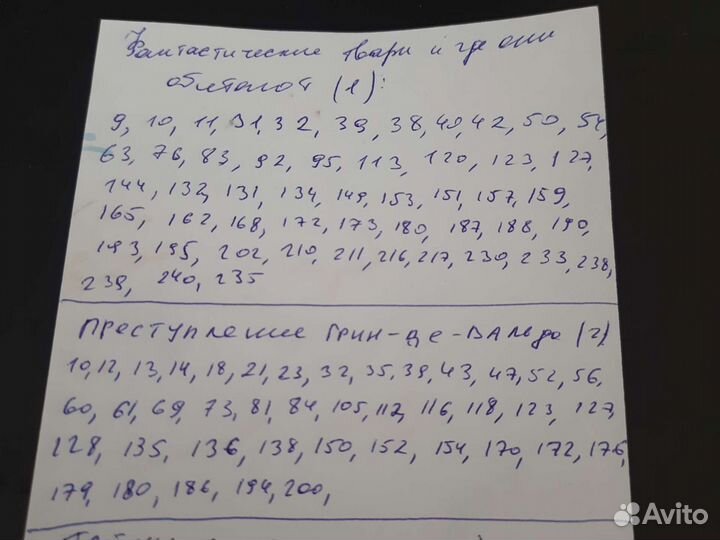 Фантастические твари и где они
обитают (1):
9, 10, 11, 31, 32, 39, 38, 40, 42, 50, 54,
63, 76, 83, 92, 95, 113, 120, 123, 127,
144, 132, 131, 134, 149, 153, 151, 157, 159,
165, 162, 168, 172, 173, 180, 187, 188, 190,
193, 195, 202, 210, 211, 216, 217, 230, 233, 238,
239, 240, 235
Преступление Грин-де-Вальда (2)
10, 12, 13, 14, 18, 21, 23, 32, 35, 39, 43, 47, 52, 56,
60, 61, 69, 73, 81, 84, 105, 112, 116, 118, 123, 127,
128, 135, 136, 138, 150, 152, 154, 170, 172, 176,
179, 180, 186, 194, 200,
Avito